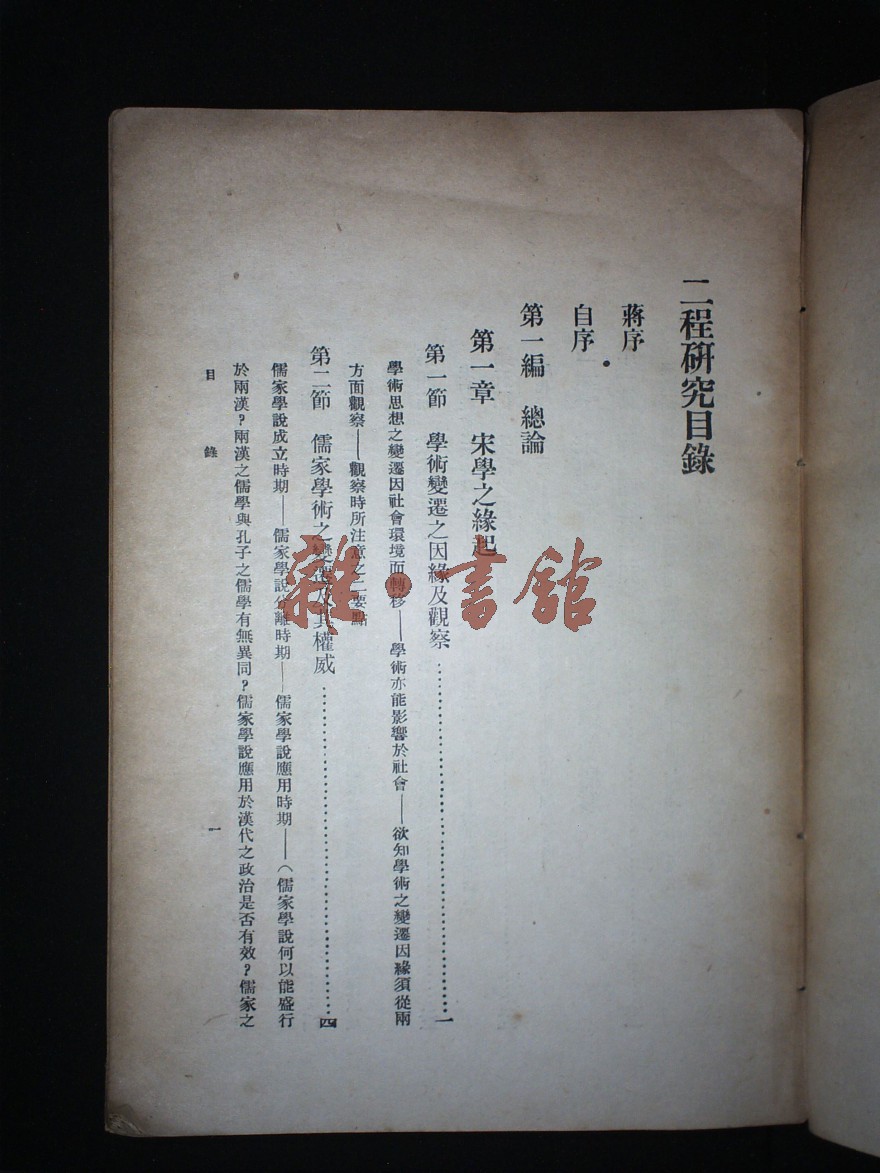 二程研究目錄
蔣序
自序
第一編 總論
第一章 宋學之緣起
第一節 學術變遷之因緣及觀察……一
學術思想之變遷因社會環境而轉移——學術亦能影響於社會——欲知學術之變遷因緣須從兩
方面觀察——觀察時所注意之二要點
第二節 儒家學術之變遷及其權威……四
儒家學說成立時期——儒家學說分離時期——儒家學說應用時期——（儒家學說何以能盛行
於兩漢？兩漢之儒學與孔子之儒學有無異同？儒家學說應用於漢代之政治是否有效？儒家之
目錄
一
雜·書館